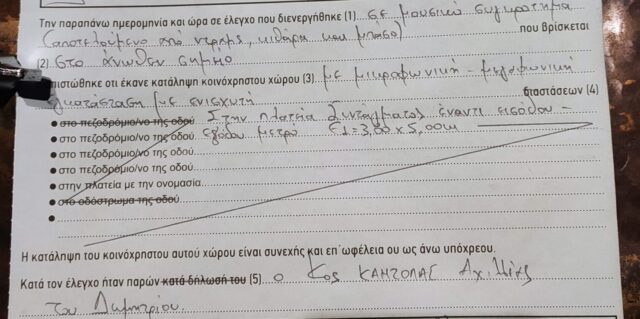 Την παραπάνω ημερομηνία και ώρα σε έλεγχο που διενεργήθηκε (1) σε μουσικό συγκρότημα
(αποτελούμενο από ντραμς, κιθάρα και μπάσο) που βρίσκεται
(2) στο άνωθεν σημείο
πιστώθηκε οτι έκανε κατάληψη κοινόχρηστου χώρου (3) με μικροφωνική - μεγαφωνική
εγκατάσταση με ενισχυτή διαστάσεων (4)
• στο πεζοδρόμιο/νο της οδού Στην πλατεία Συντάγματος έναντι εισόδου -
• στο πεζοδρόμιο/νο της οδού εξόδου μετρό Ε1=3,00 x 5,00m
• στο πεζοδρόμιο/νο της οδού
• στο πεζοδρόμιο/νο της οδού
• στην πλατεία με την ονομασία
• στο οδόστρωμα της οδού
•
Η κατάληψη του κοινόχρηστου αυτού χώρου είναι συνεχής και επ΄ωφέλεια ου ως άνω υπόχρεου.
Κατά τον έλεγχο ήταν παρών κατά δήλωσή του (5) ο κος ΚΑΝΤΟΛΑΣ
του Δημητρίου